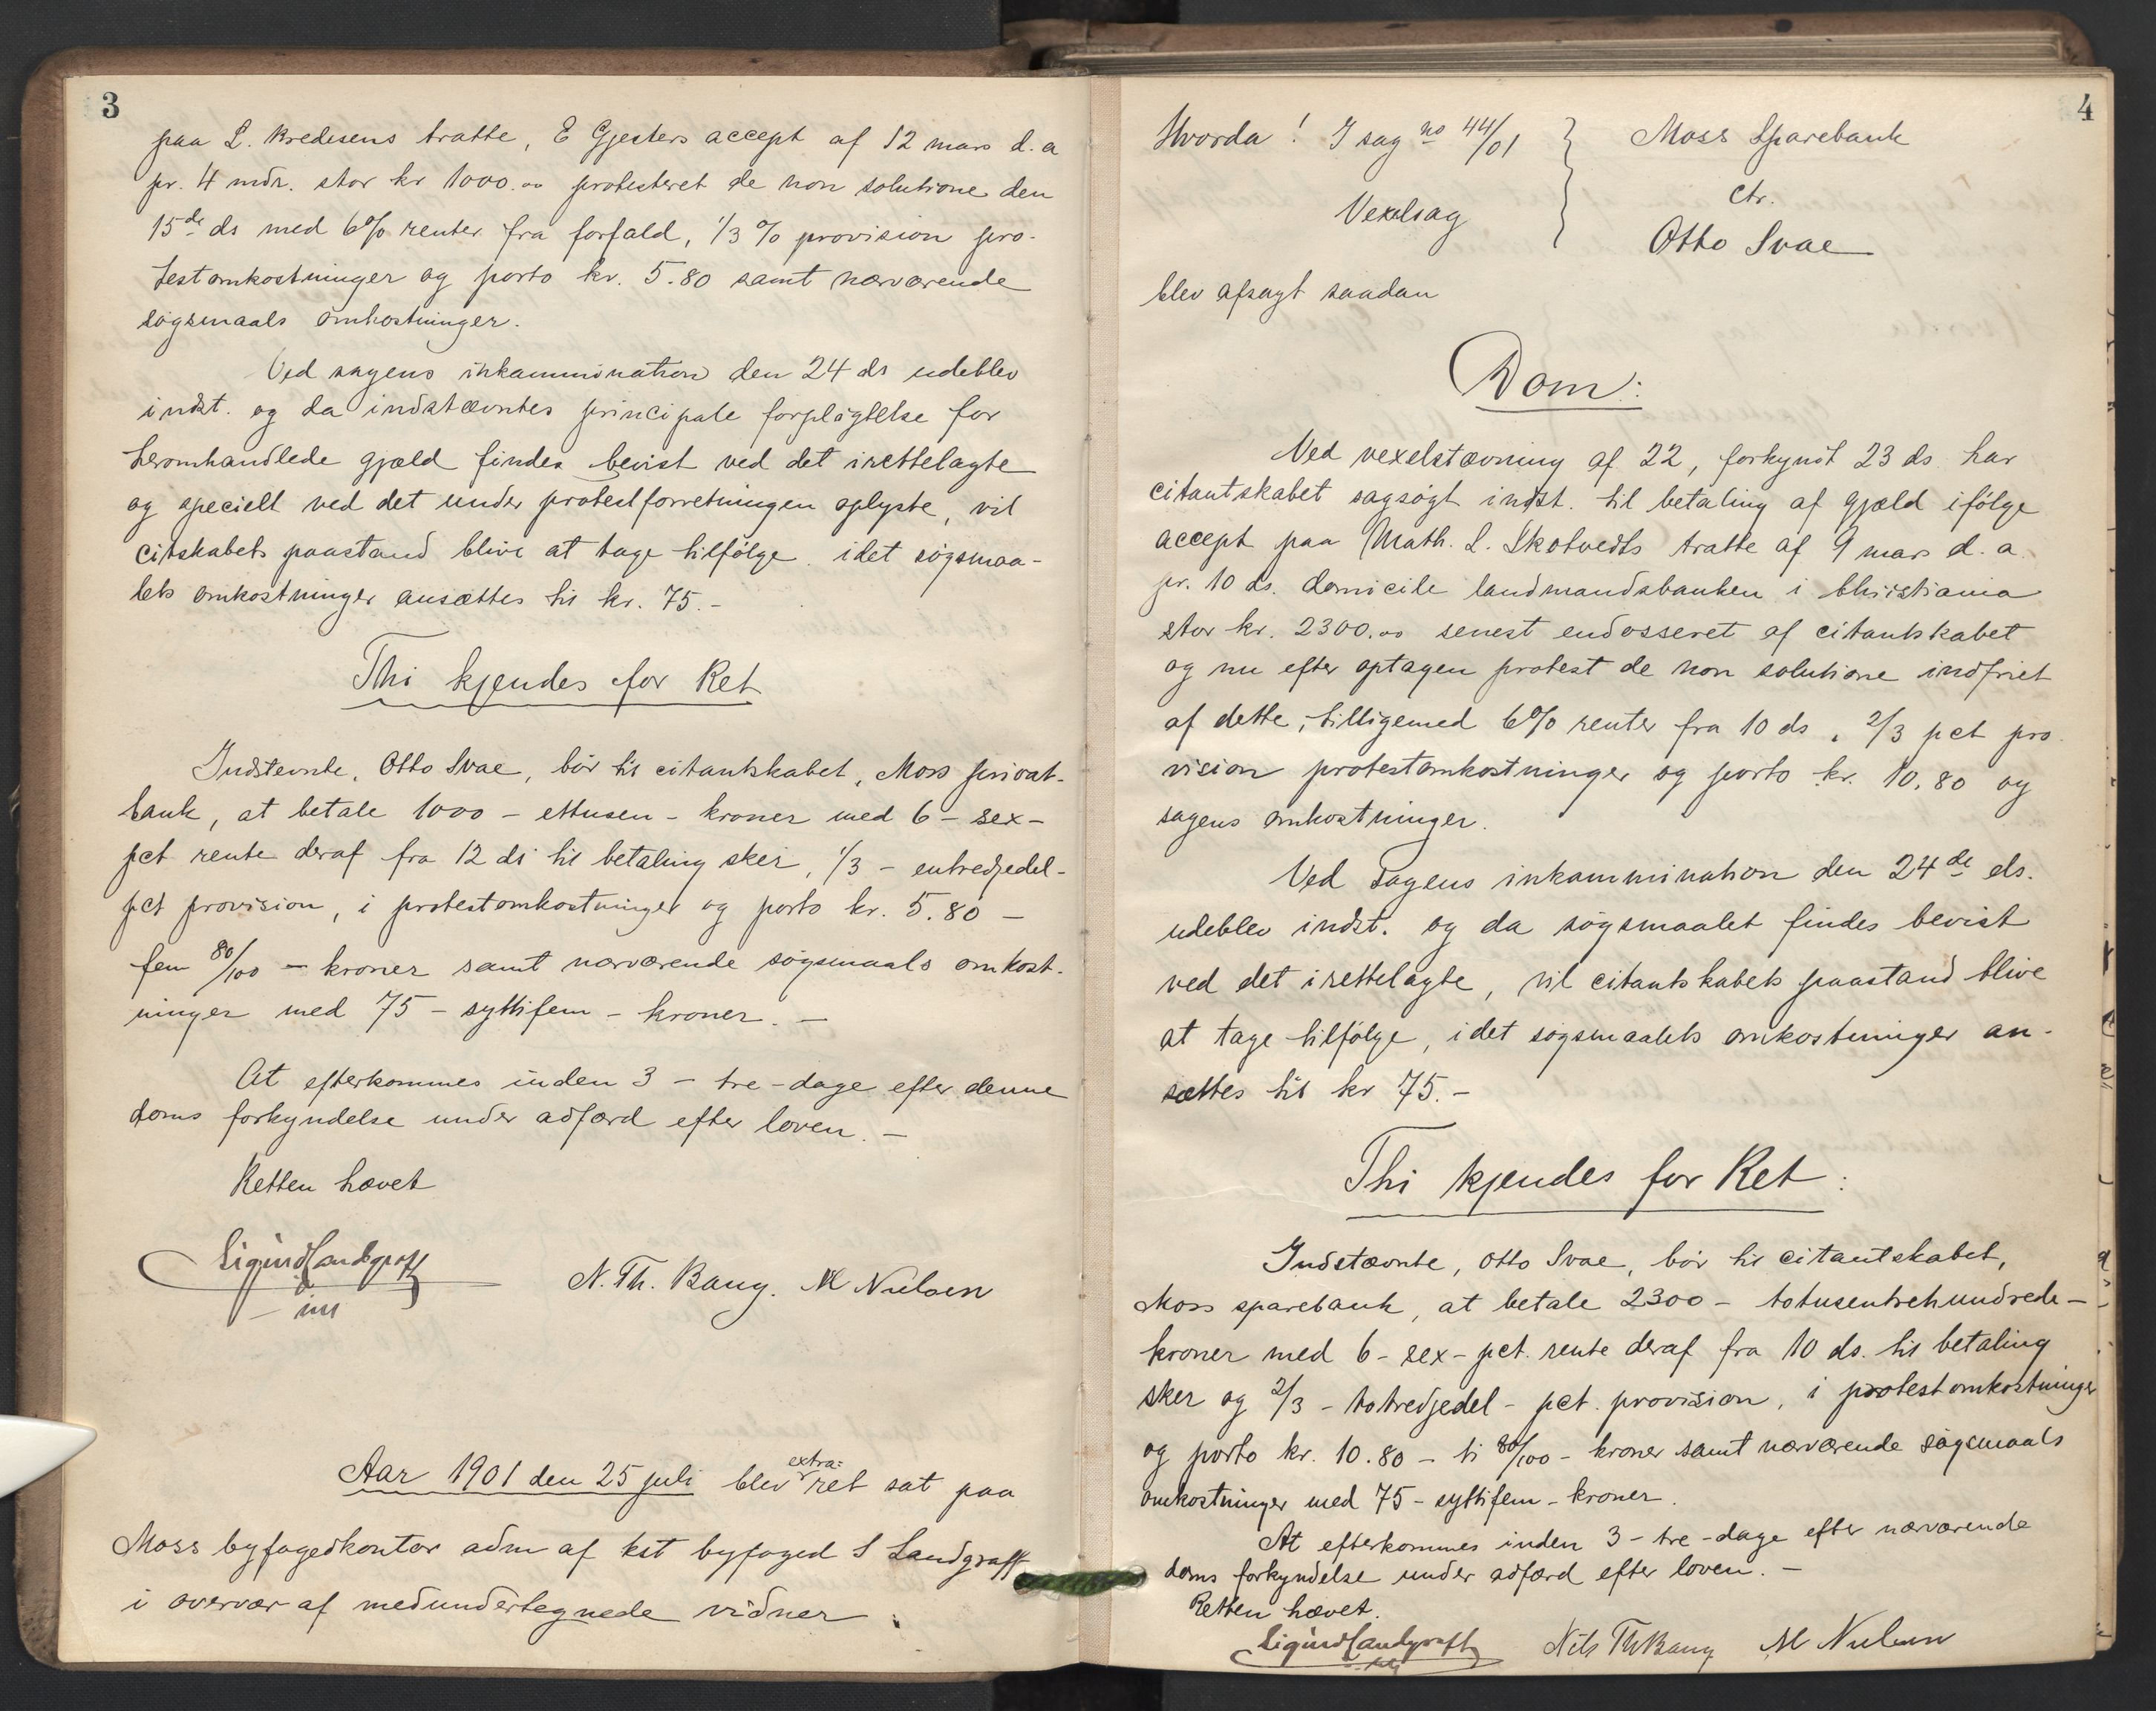 3
paa L. Kredisens tratte, E Gjesters accept af 12 mars d. a
pr. 4 mdr. stor kr 1000.00 protesteret de non solutione den
15de ds med 6% renter fra forfald, 1/3 % provision pro-
testomkostninger og porto kr. 5.80 samt nærværende
søgsmaals omkostninger.
Ved sagens inkammination den 24 ds udeblev
indst. og da indstævntes principale forpligtelse for
heromhandlede gjæld findes bevist ved det irettelagte
og specielt ved det under protestforretningen oplyste, vil
citskabets paastand blive at tage tilfølge. idet søgsmaa-
lets omkostninger ansættes til kr. 75.-
Thi kjendes for Ret
Indstevnte, Otto Svae, bør til citantskabet, Moss privat-
bank, at betale 1000 - ettusen - kroner med 6 - sex -
pct rente deraf fra 12 ds til betaling sker, 1/3 - entredjedel -
pct provision, i protestomkostninger og porto kr. 5.80 -
fem 80/100 - kroner samt nærværende søgsmaals omkost-
ninger med 75 - syttifem - kroner. -
At efterkommes inden 3 - tre - dage efter denne
doms forkyndelse under adfærd efter loven. -
Retten hævet
Sigurd Landgraff
N. Th. Bang. M Nielsen
Aar 1901 den 25 juli blev extra- ret sat paa
Moss byfogedkontor adm af kst byfoged S Landgraff
i overvær af medundertegnede vidner
4
Hvorda! I sag no 44/01 } Moss Sparebank
Vexelsag
ctr.
Otto Svae
blev afsagt saadan
Dom:
Ved vexelstævning af 22, forkyndt 23 ds har
citantskabet sagsøgt indst. til betaling af gjæld ifølge
accept paa Math. L. Skotvedts tratte af 9 mars d. a.
pr. 10 ds. domicile landmandsbanken i Christiania
stor kr. 2300.00 senest endosseret af citantskabet
og nu efter optagen protest de non solutione indfriet
af dette, tilligemed 6% renter fra 10 ds, 2/3 pct pro-
vision protestomkostninger og porto kr. 10.80 og
sagens omkostninger.
Ved sagens inkammination den 24de ds.
udeblev indst. og da søgsmaalet findes bevist
ved det irettelagte, vil citantskabets paastand blive
at tage tilfølge, idet søgsmaalets omkostninger an-
sættes til kr 75.-
Thi kjendes for Ret:
Indstævnte, Otto Svae, bør til citantskabet,
Moss sparebank, at betale 2300 - totusentrehundrede -
kroner med 6 - sex - pct. rente deraf fra 10 ds. til betaling
sker og 2/3 - totredjedel - pct. provision, i protestomkostninger
og porto kr. 10.80 - ti 80/100 - kroner samt nærværende søgsmaals
omkostninger med 75 - syttifem - kroner.
At efterkommes inden 3 - tre - dage efter nærværende
doms forkyndelse under adfærd efter loven. -
Retten hævet.
Sigurd Landgraff Nils Th Bang M Nielsen